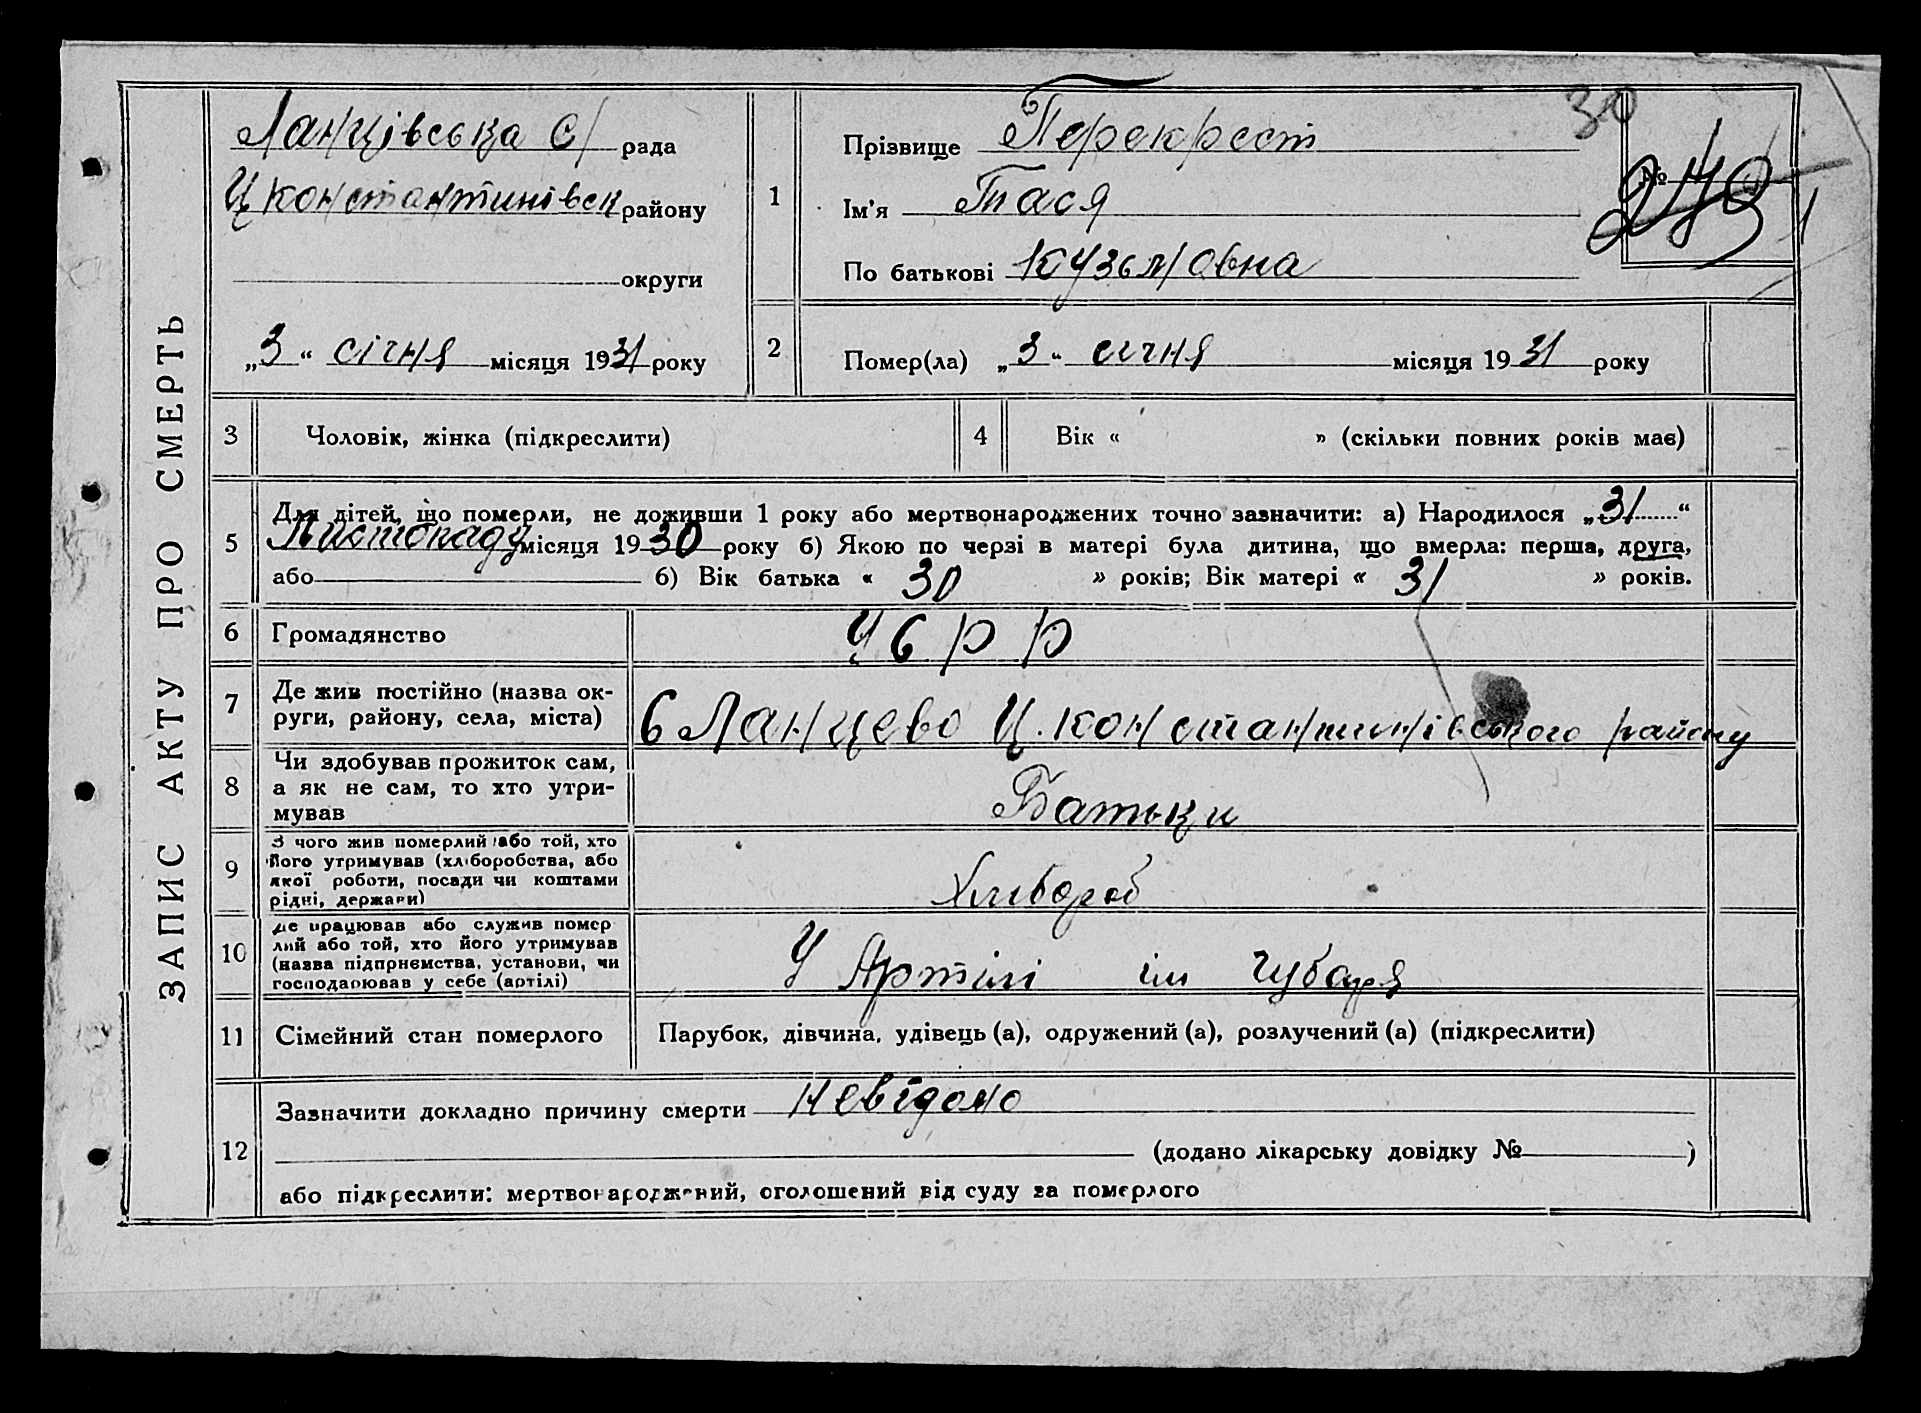 ЗАПИС АКТУ ПРО СМЕРТЬ
Ланцівська с/ рада
Ц константинівськ району
округи
„3“ січня місяця 1931 року
1
Прізвище Перекрест
Ім'я Тася
По батькові Кузьмовна
30
№
2
Помер(ла) „3“ січня місяця 1931 року
3 Чоловік, жінка (підкреслити)
4 Вік « » (скільки повних років має)
5 Для дітей, що померли, не доживши 1 року або мертвонароджених точно зазначити: а) Народилося „31“
Листопаду місяця 1930 року б) Якою по черзі в матері була дитина, що вмерла: перша, друга,
або б) Вік батька « 30 » років; Вік матері « 31 » років.
6 Громадянство УСРР
7 Де жив постійно (назва ок-
руги, району, села, міста) с Ланцево Ц. константинівського району
8 Чи здобував прожиток сам,
а як не сам, то хто утри-
мував Батьки
9 З чого жив померлий або той, хто
його утримував (хліборобства, або
якої роботи, посади чи коштами
рідні, держави) Хлібороб
10 Де працював або служив помер
лий або той, хто його утримував
(назва підприємства, установи, чи
господарював у себе (артілі) У Артілі ім Чубаря
11 Сімейний стан померлого Парубок, дівчина, удівець (а), одружений (а), розлучений (а) (підкреслити)
12 Зазначити докладно причину смерти невідомо
(додано лікарську довідку № )
або підкреслити: мертвонароджений, оголошений від суду за померлого